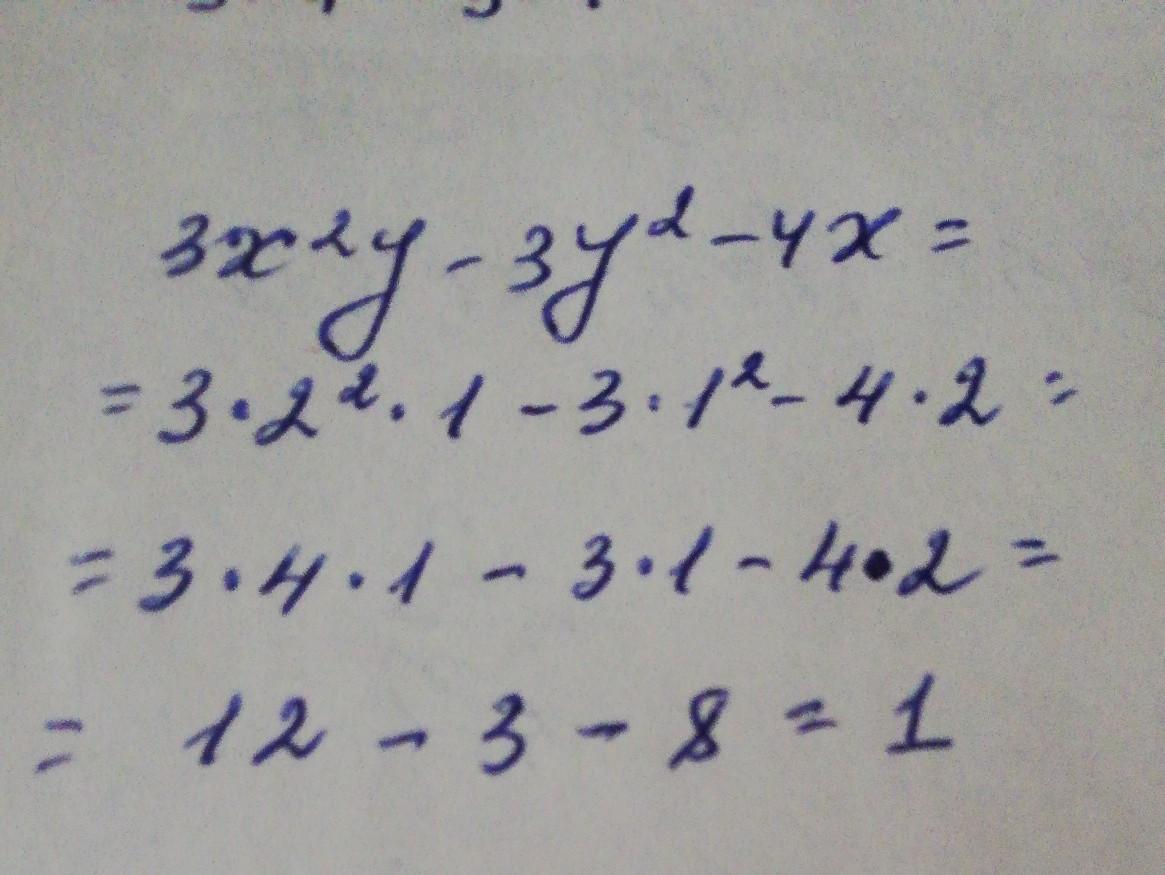 3x²y - 3y² - 4x =
= 3 · 2² · 1 - 3 · 1² - 4 · 2 =
= 3 · 4 · 1 - 3 · 1 - 4 · 2 =
= 12 - 3 - 8 = 1